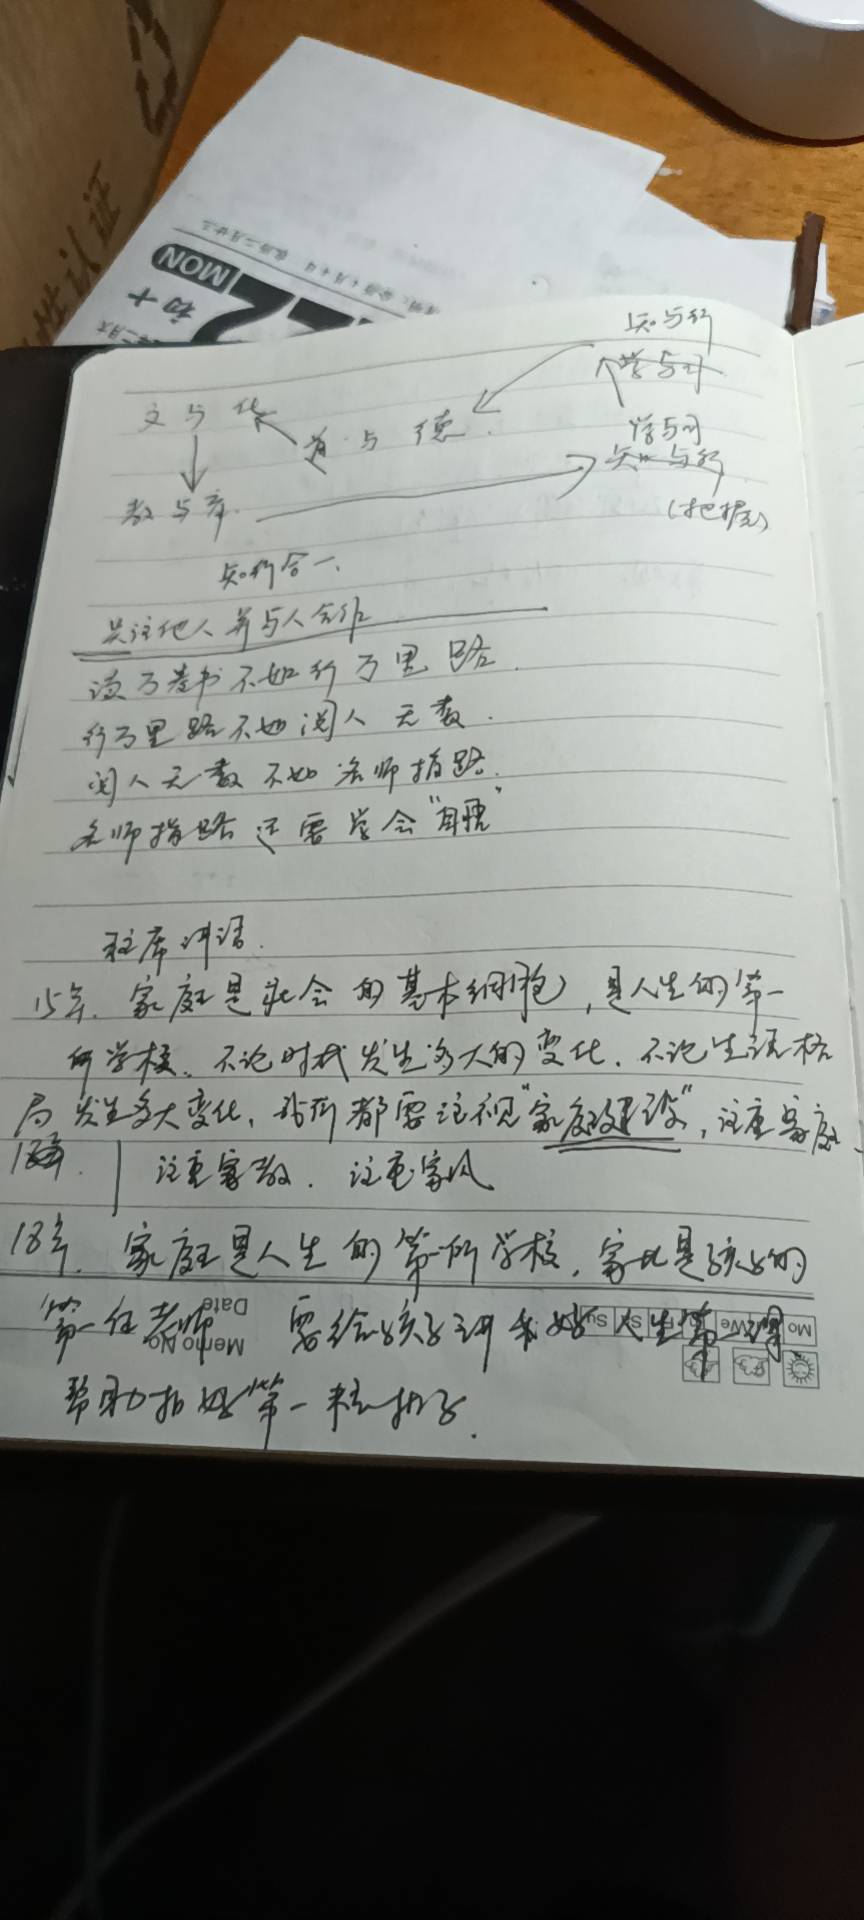 性认证
MON
初十
知与行
学与习
文与化
道与德.
学与习
知与行
教与育.
(把握)
知行合一.
关注他人并与人合作
读万卷书不如行万里路.
行万里路不如阅人无数.
阅人无数不如名师指路.
名师指路还需学会"自醒"
主席讲话.
15年. 家庭是社会的基本细胞, 是人生的第一
所学校. 不论时代发生多大的变化. 不论生活格
局发生多大变化, 我们都要注视"家庭建设", 注重家庭.
注重家教. 注重家风
18年. 家庭是人生的第一所学校, 家长是孩子的
第一任老师 要给孩子讲好 人生第一课
帮助扣好第一粒扣子.
Memo No
Date
Mo We Fr Su